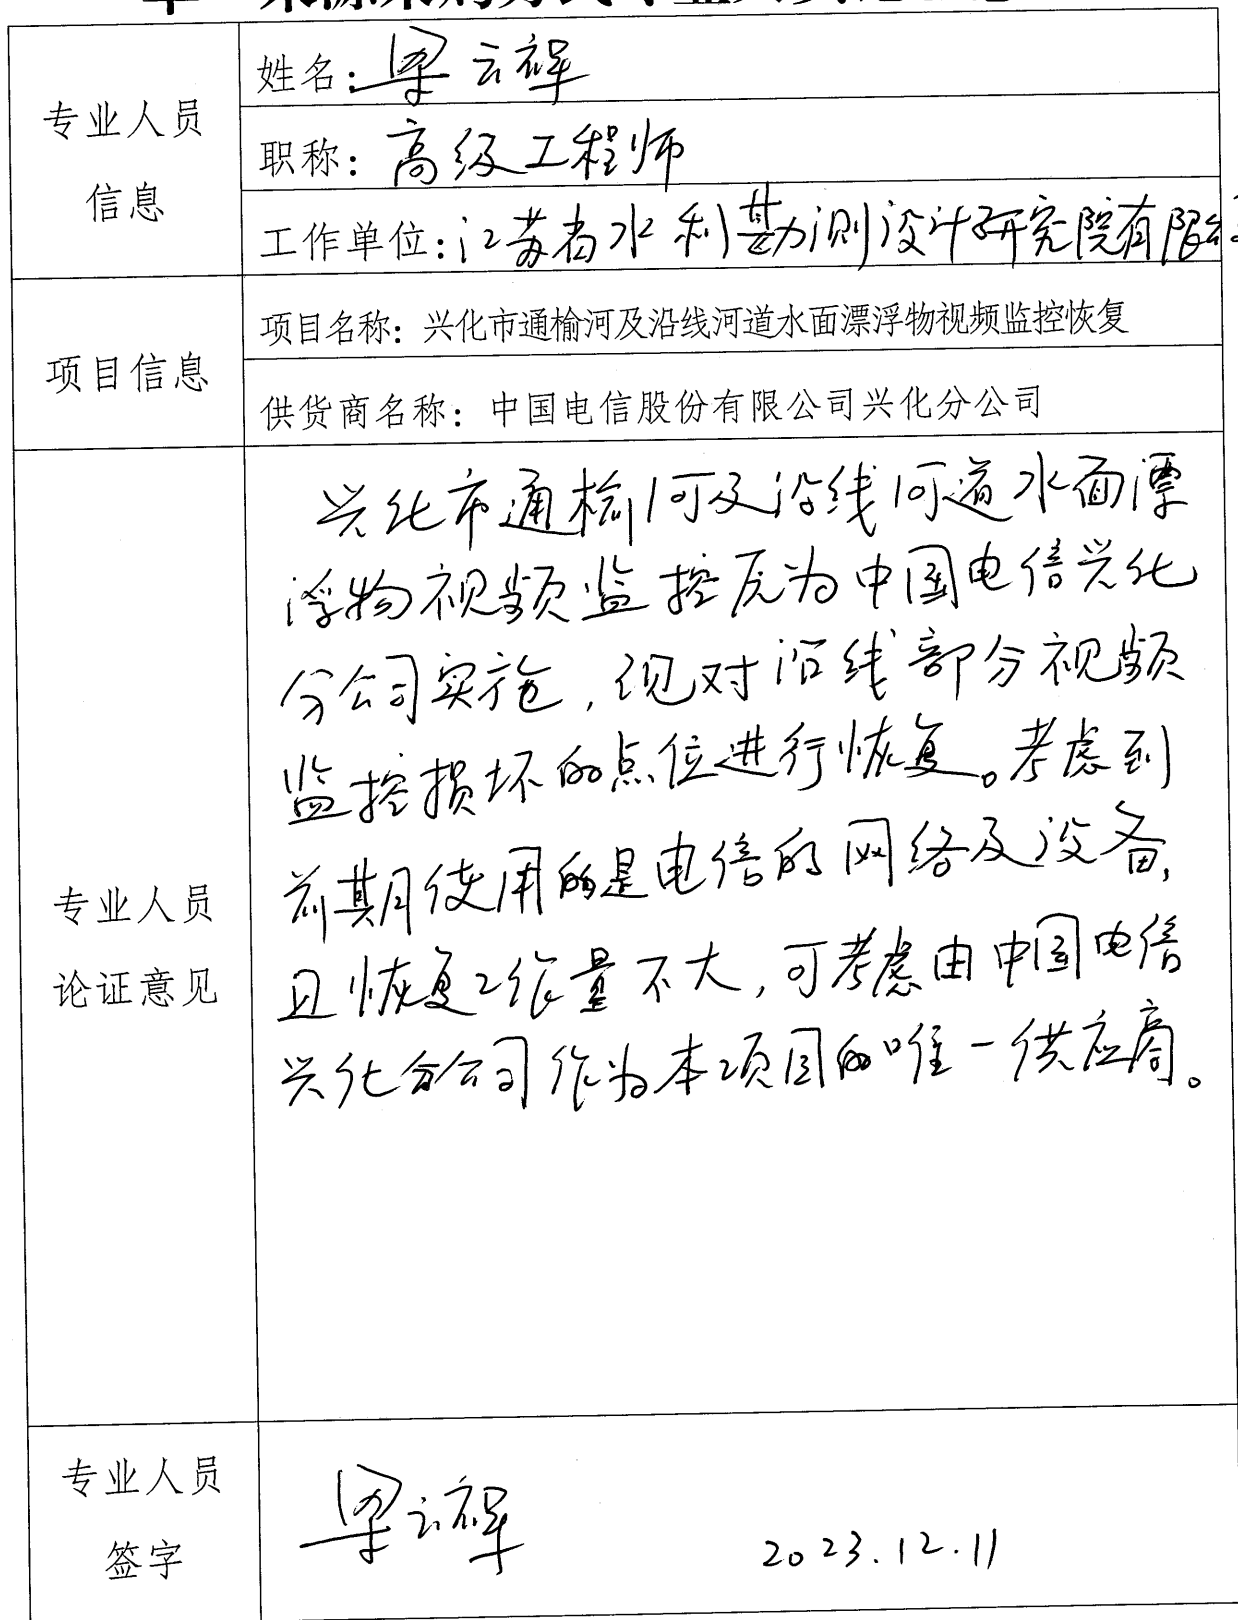 单一来源采购方式专业人员论证意见
专业人员
信息
姓名：梁云
职称：高级工程师
工作单位：江苏省水利勘测设计研究院有限
项目信息
项目名称：兴化市通榆河及沿线河道水面漂浮物视频监控恢复
供货商名称：中国电信股份有限公司兴化分公司
专业人员
论证意见
兴化市通榆河及沿线河道水面漂
浮物视频监控原为中国电信兴化
分公司实施，现对沿线部分视频
监控损坏的点位进行恢复。考虑到
前期使用的是电信的网络及设备，
且恢复工作量不大，可考虑由中国电信
兴化分公司作为本项目的唯一供应商。
专业人员
签字
梁云
2023.12.11